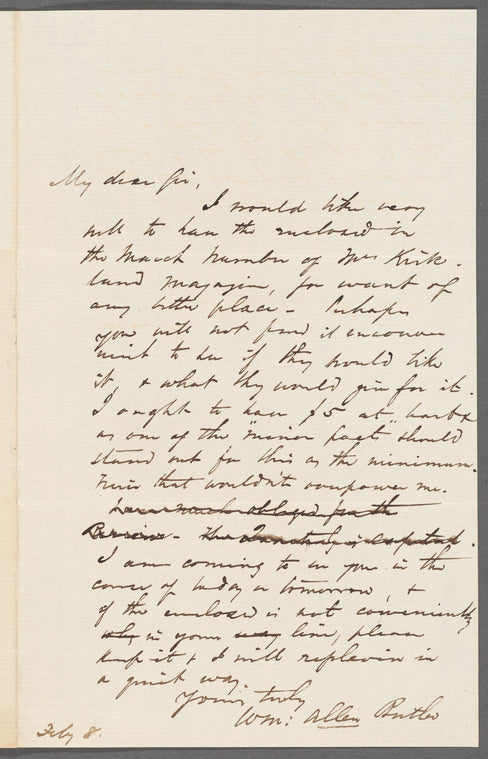 My dear Sir,
I would like very
well to have the enclosed in
the March number of Mrs Kirk-
land magazine, for want of
any better place - Perhaps
you will not find it inconve
nient to see if they would like
it, & what they would give for it.
I ought to have $5 at
as one of the "minor poets" should
stand out for this as the minimum.
that wouldn't overpower me.
I am much obliged for the
Review - The Quarterly is capital.
I am coming to see you in the
course of today or tomorrow, &
if the enclosed is not conveniently
in your way line, please
keep it & I will replevin in
a quiet way.
Yours truly
Wm: Allen Butler
Feby 8.